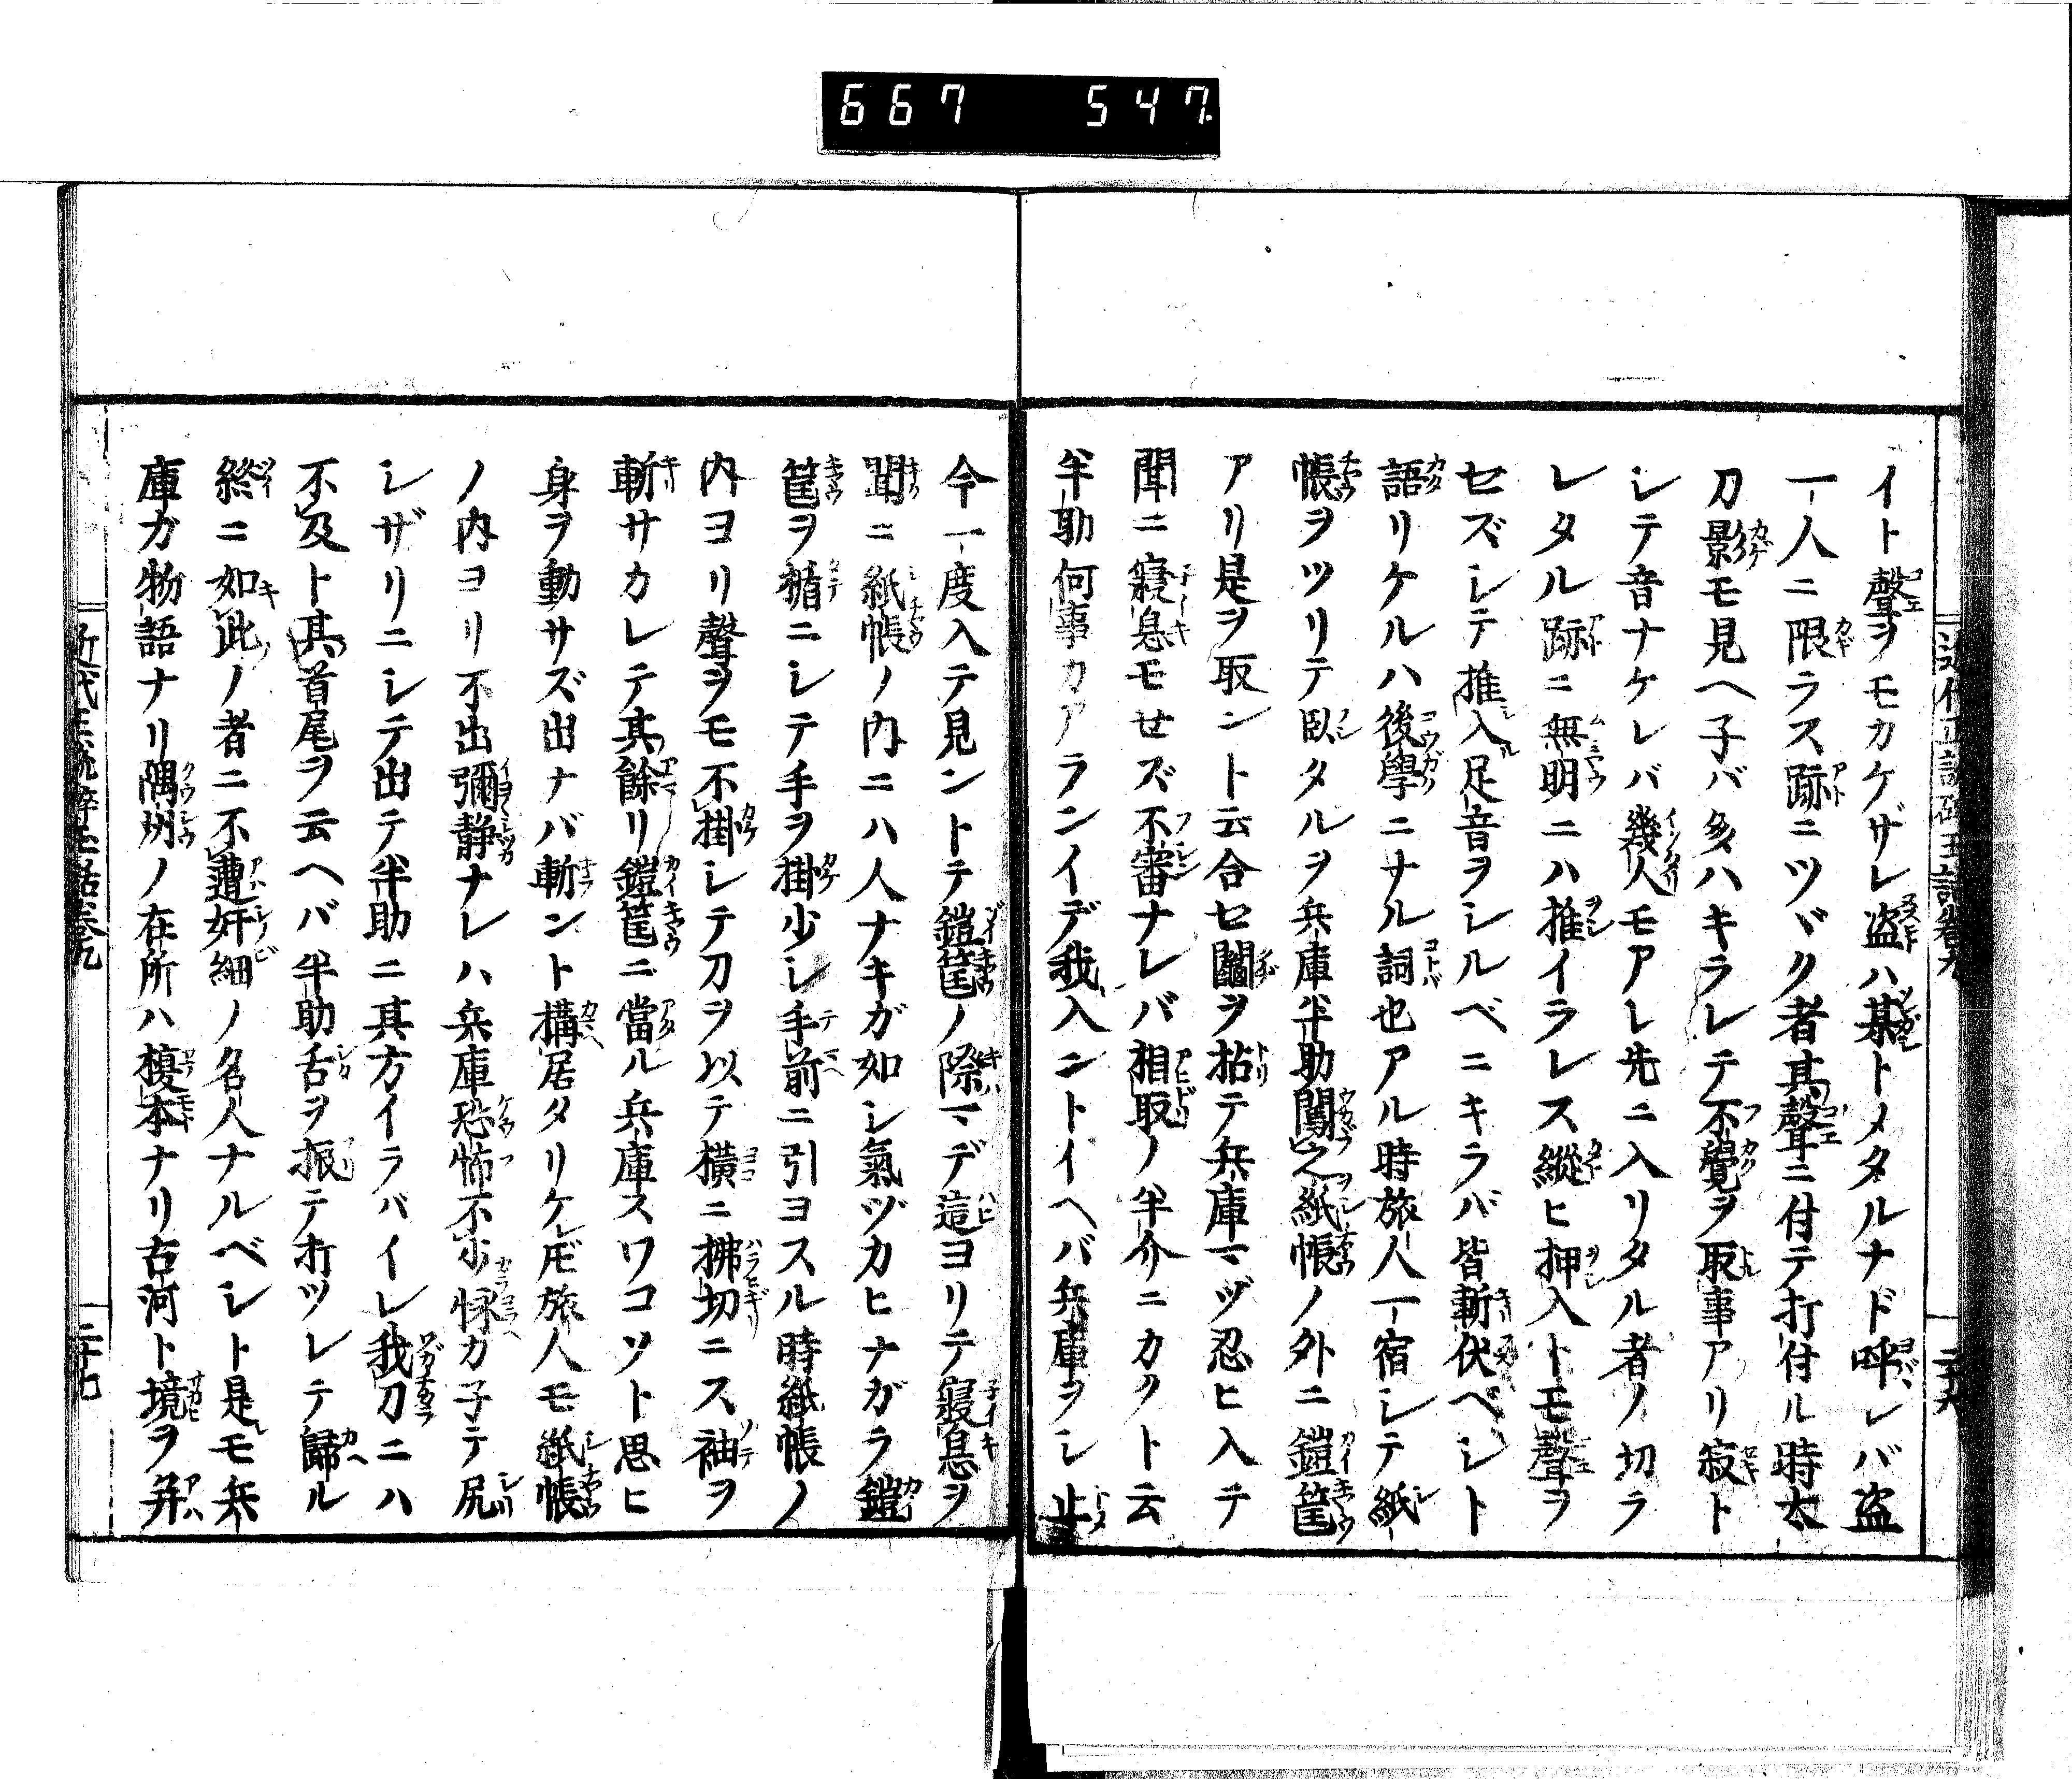 667 547
イト聲ヲモカケザレ盗ハ某トメタルナド呼レバ盗
一人ニ限ラス跡ニツヾク者其聲ニ付テ打付ル時太
刀影モ見ヘ子バ多ハキラレテ不覺ヲ取事アリ寂ト
シテ音ナケレバ幾人モアレ先ニ入リタル者ノ切ラ
レタル跡ニ無明ニハ推イラレス縱ヒ押入トモ聲ヲ
セズレテ推入足音ヲシルベニキラバ皆斬伏ベシト
語リケルハ後學ニサル詞也アル時旅人一宿シテ紙
帳ヲツリテ臥タルヲ兵庫半助闖之紙帳ノ外ニ鎧筐
アリ是ヲ取ント云合セ鬮ヲ拈テ兵庫マヅ忍ヒ入テ
聞ニ寝息モせズ不審ナレバ相取ノ半介ニカクト云
半助何事カアランイデ我入ントイヘバ兵庫ヲシ止
今一度入テ見ントテ鎧筐ノ際マデ這ヨリテ寝息ヲ
聞ニ紙帳ノ内ニハ人ナキガ如シ氣ヅカヒナガラ鎧
筐ヲ楯ニシテ手ヲ掛少シ手前ニ引ヨスル時紙帳ノ
内ヨリ聲ヲモ不掛シテ刀ヲ以テ横ニ拂切ニス袖ヲ
斬サカレテ其餘リ鎧筐ニ當ル兵庫スワコソト思ヒ
身ヲ動サズ出ナバ斬ント構居タリケレ𪜈旅人モ紙帳
ノ内ヨリ不出彌静ナレハ兵庫恐怖不少怺カ子テ尻
シザリニシテ出テ半助ニ其方イラバイレ我刀ニハ
不及ト其首尾ヲ云ヘバ半助舌ヲ振テ打ツレテ歸ル
終ニ如此ノ者ニ不遭奸細ノ名人ナルベシト是モ兵
庫ガ物語ナリ隅州ノ在所ハ榎本ナリ古河ト境ヲ并